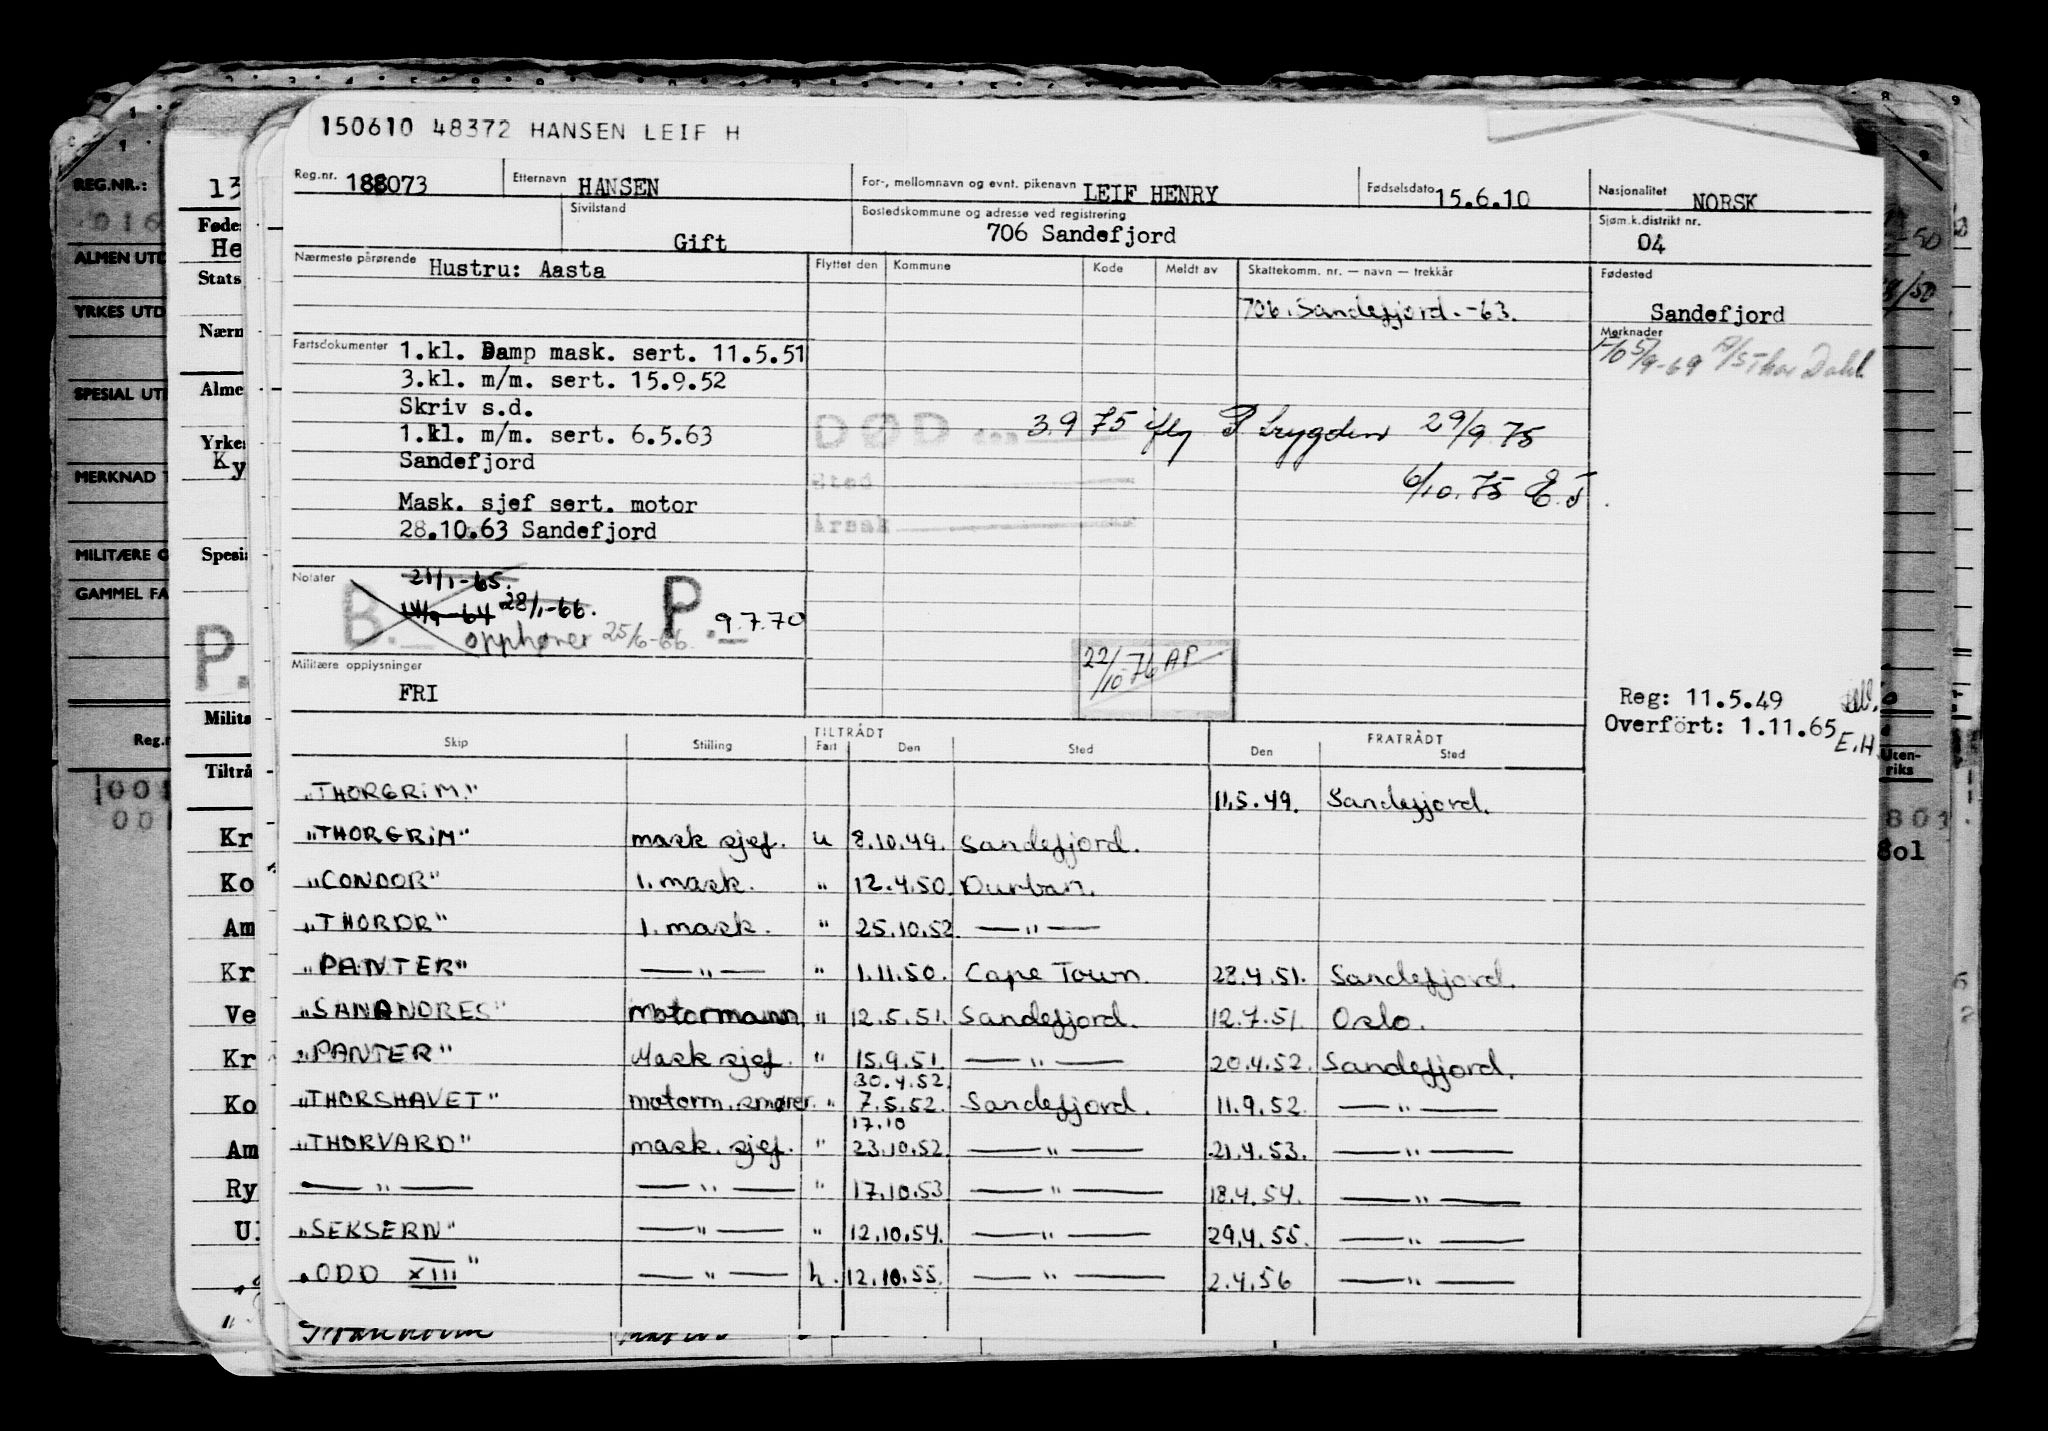 150610 48372 HANSEN LEIF H
Reg.nr. 188073 Etternavn HANSEN For-, mellomnavn og evnt. pikenavn LEIF HENRY Fødselsdato 15.6.10 Nasjonalitet NORSK
Sivilstand Gift Bostedskommune og adresse ved registrering 706 Sandefjord Sjøm.k.distrikt nr. 04
Nærmeste pårørende Hustru: Aasta Flyttet den Kommune Kode Meldt av Skattekomm. nr. — navn — trekkår Fødested
706. Sandefjord. -63. Sandefjord
Merknader
5/9-69 A/S Thor Dahl
Fartsdokumenter 1.kl. Damp mask. sert. 11.5.51
3.kl. m/m. sert. 15.9.52
Skriv s.d.
1.kl. m/m. sert. 6.5.63
Sandefjord
Mask. sjef sert. motor
28.10.63 Sandefjord
DØD den 3.9 75 iflg trygden 29/9 75
6/10.75 E.J.
Sted
Årsak
Notater 21/1-65.
B. 14/9-64 28/1-66.
opphører 25/6-66. P. 9.7.70
22/10-76 AP
Militære opplysninger
FRI
Reg: 11.5.49
Overført: 1.11.65 E.H
TILTRÅDT FRATRÅDT
Skip Stilling Fart Den Sted Den Sted
"THORGRIM." 11.5.49. Sandefjord.
"THORGRIM" mask sjef. u 8.10.49. Sandefjord.
"CONDOR" 1. mask. " 12.4.50. Durban.
"THORDR" 1. mask. " 25.10.52. — " —
"PANTER" — " — " 1.11.50. Cape Town. 28.4.51. Sandefjord.
"SANANDRES" Motormann, " 12.5.51. Sandefjord. 12.7.51. Oslo.
"PANTER" Mask sjef. " 15.9.51. — " — 20.4.52. Sandefjord.
30.4.52.
"THORSHAVET" motorm. smører. " 7.5.52. Sandefjord. 11.9.52. — " —
17.10
"THORVARD" mask. sjef. " 23.10.52. — " — 21.4.53. — " —
— " — — " — " 17.10.53 — " — 18.4.54. — " —
"SEKSERN" — " — " 12.10.54. — " — 29.4.55. — " —
"ODD XIII" — " — h. 12.10.55. — " — 2.4.56 — " —
REG.NR.:
016
ALMEN UTD
YRKES UTD
SPESIAL UTD
MERKNAD T
MILITÆRE O
GAMMEL FA
Reg.n
001
001
13
Føde
He
Stats
Nærm
Alme
Yrke
Ky
Spesia
P.
Milita
Tiltrå
Kr
Ko
Am
Kr
Ve
Kr
Ko
Am
Ry
Ul
Uten-
riks
803
8o1